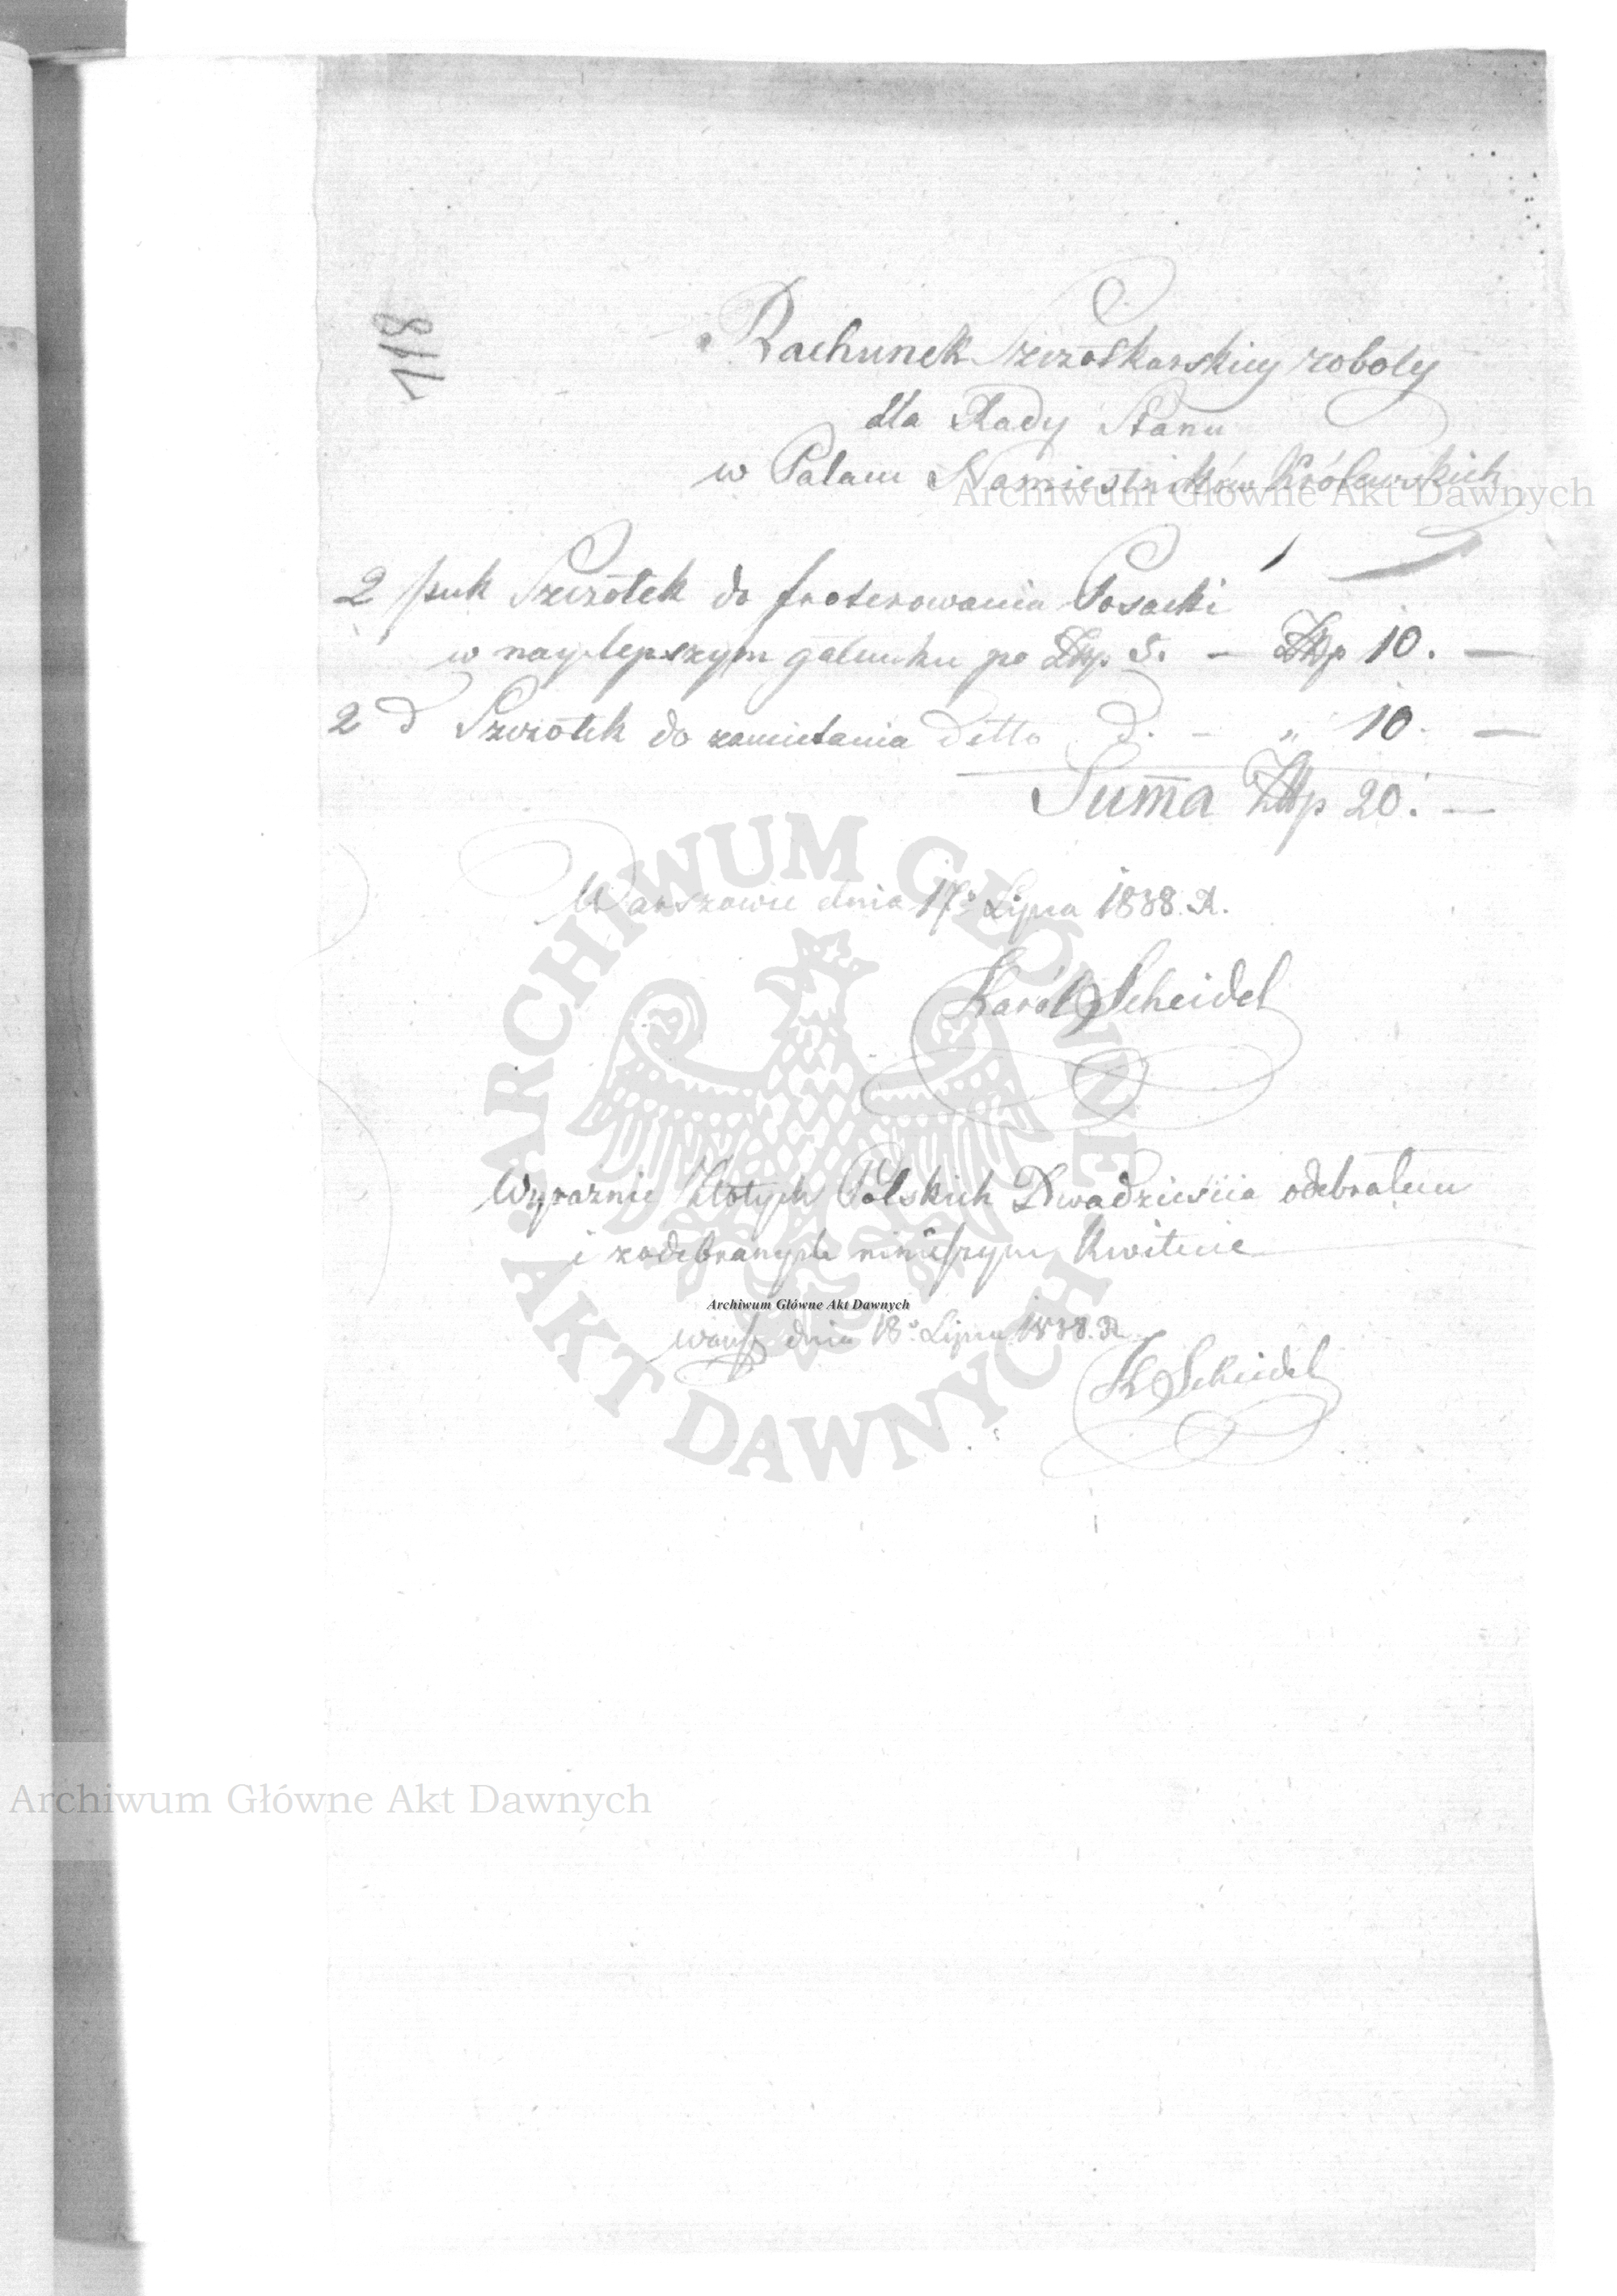 118
Rachunek Szczotkarskiey roboty
dla Rady Stanu
w Pałacu Namiestników Królewskich
Archiwum Główne Akt Dawnych
2 szuk Szczotek do froterowania Posacki
w naylepszym galuchu po Złłp 5. — Złłp 10. —
2 d Szczotek do zamietania ditto d. — „ 10. —
Sum̄a Złłp 20. —
Warszawie dnia 17° Lipca 1838. R.
Karól Scheidel
Wyraznie Złotych Polskich Dwadzieścia odebrałem
i zodebranych ninieszym Kwituie
Archiwum Główne Akt Dawnych
Warsz dnia 18° Lipca 1838. R.
K Scheidel
ARCHIWUM GŁÓWNE
AKT DAWNYCH
Archiwum Główne Akt Dawnych